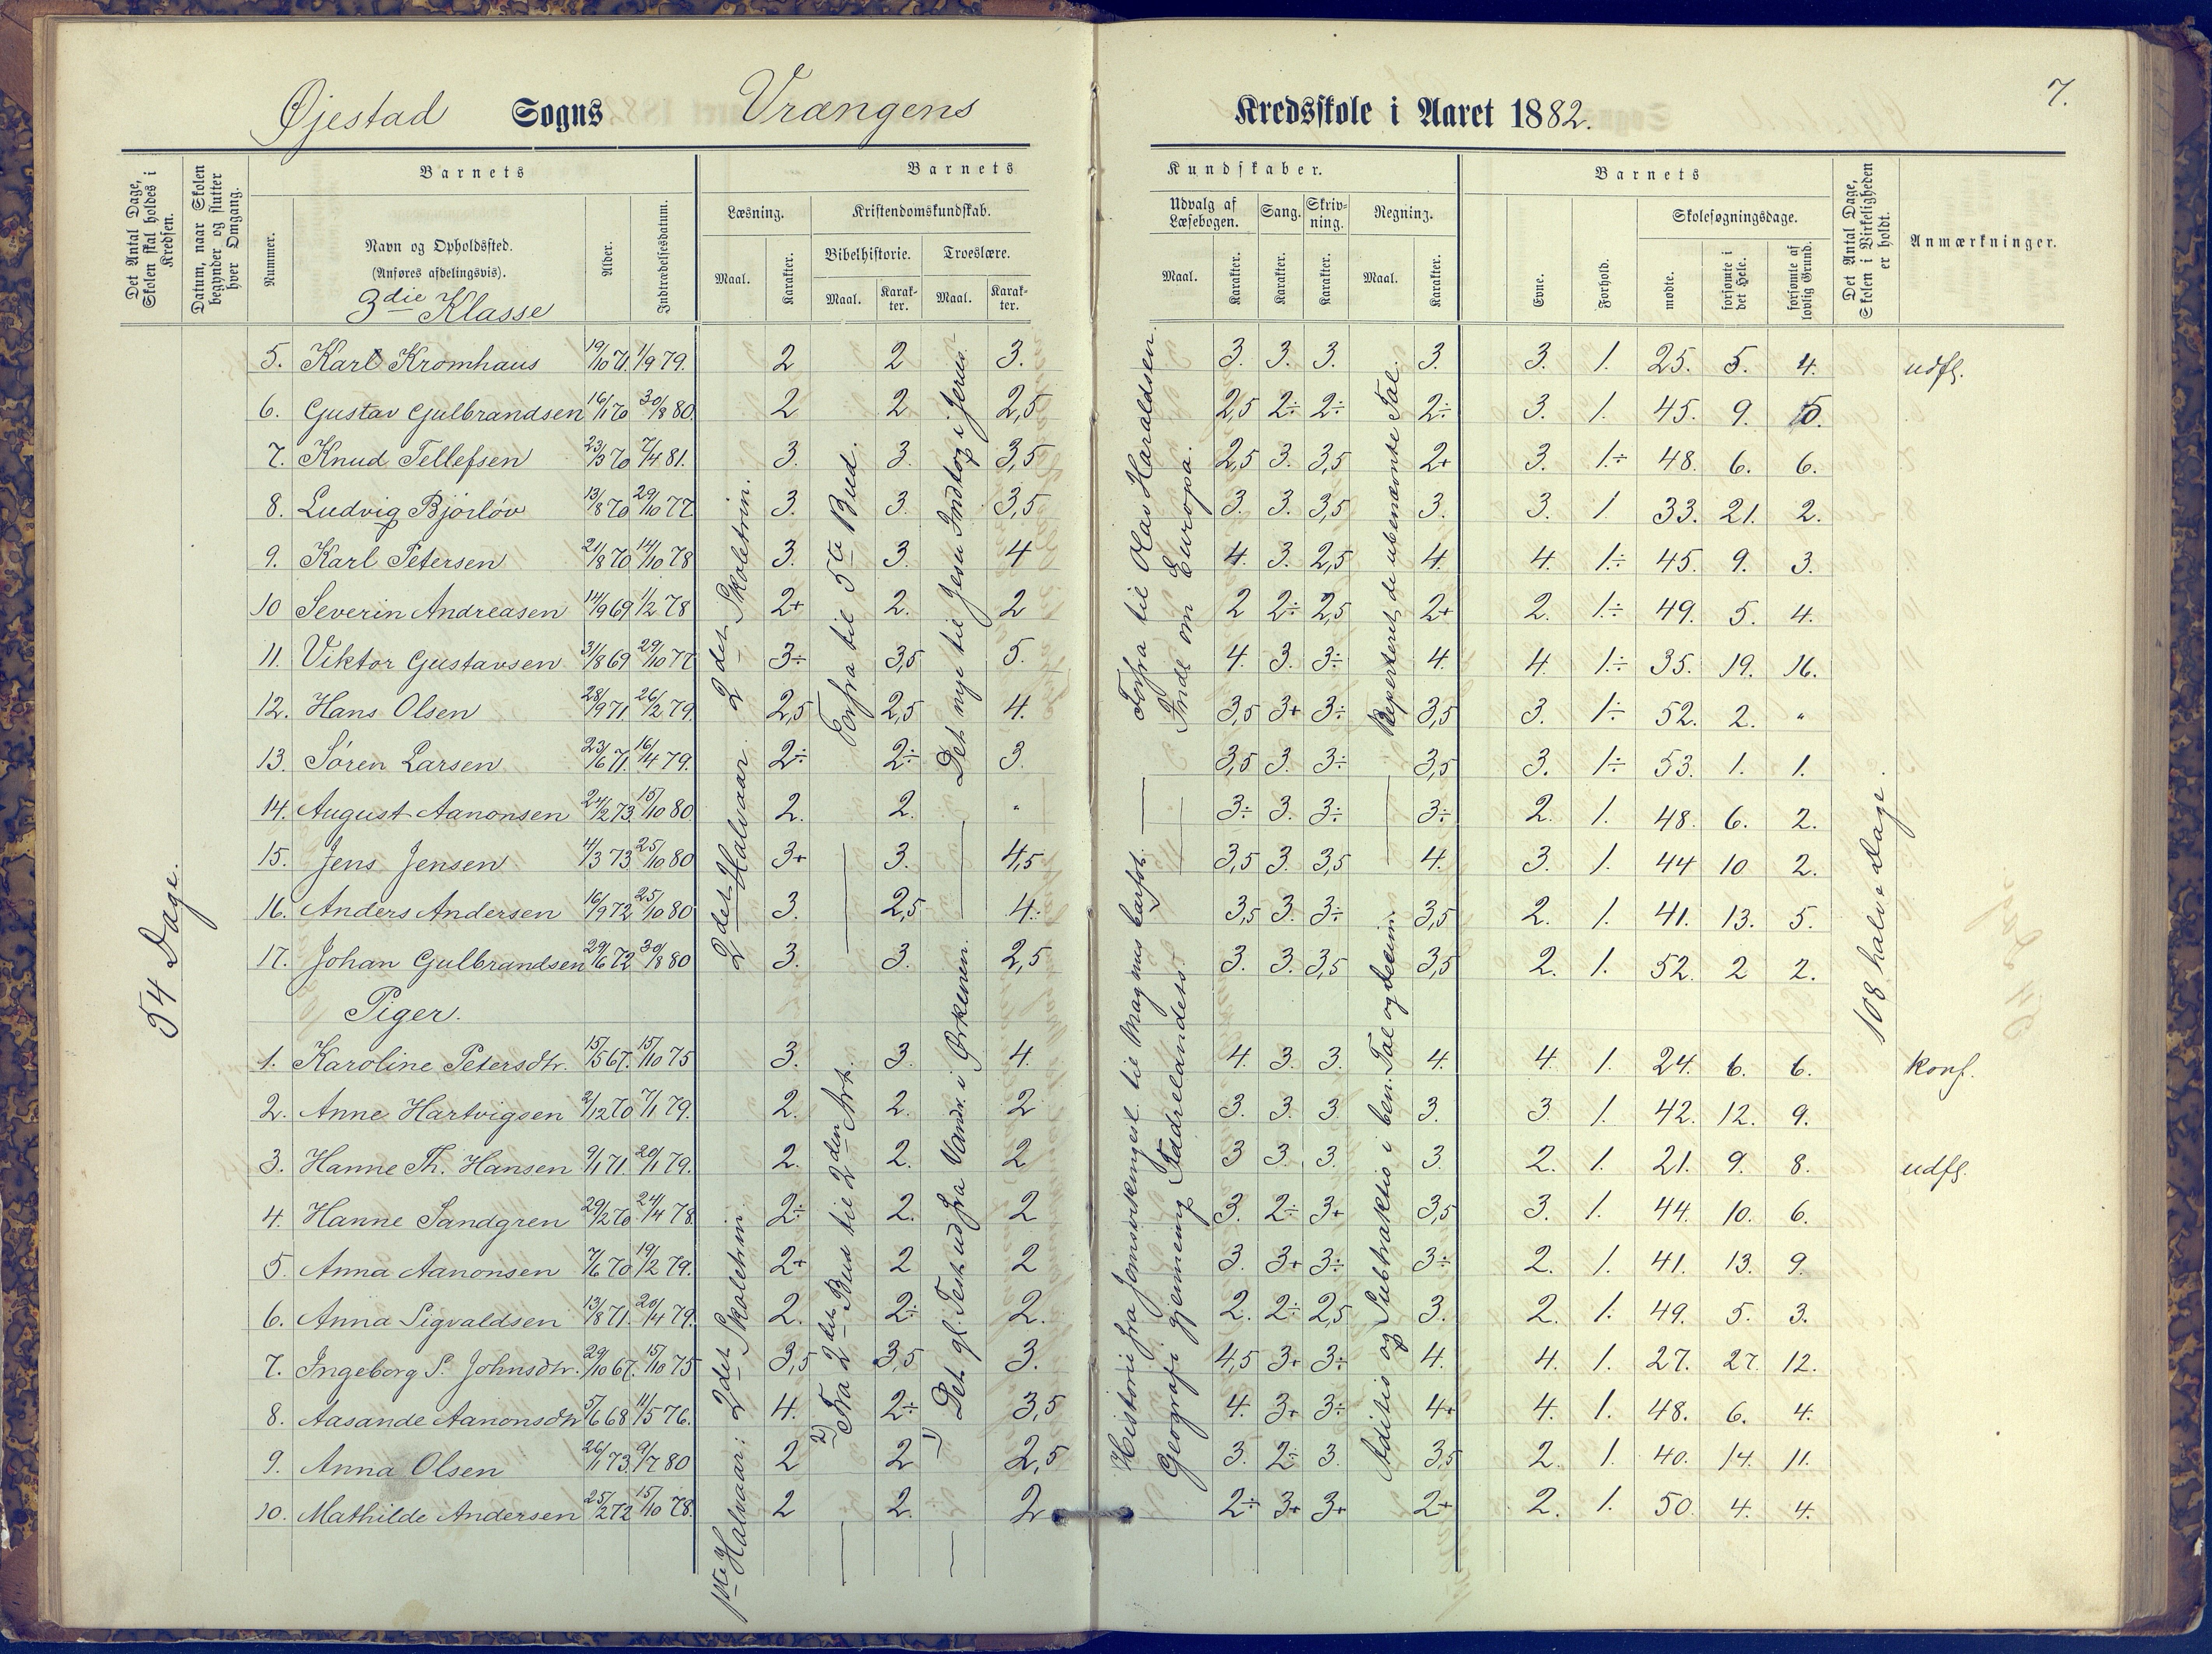 7.
Øjestad Sogns Vrængens Kredsskole i Aaret 1882.
Det Antal Dage, Skolen skal holdes i Kredsen.
Datum, naar Skolen begynder og slutter hver Omgang.
Barnets
Nummer.
Navn og Opholdssted.
(Anføres afdelingsvis).
3die Klasse
Alder.
Indtrædelsesdatum.
Barnets Kundskaber.
Læsning.
Maal. Karakter.
Kristendomskundskab.
Bibelhistorie. Troeslære.
Maal. Karakter. Maal. Karakter.
Udvalg af Læsebogen. Sang. Skrivning. Regning.
Maal. Karakter. Karakter. Karakter. Maal. Karakter.
Barnets
Evne. Forhold.
Skolesøgningsdage.
mødte. forsømte i det Hele. forsømte af lovlig Grund.
Det Antal Dage, Skolen i Virkeligheden er holdt.
Anmærkninger.
5. Karl Kromhaus 19/10 71. 1/9 79. 2 2 3. 3. 3. 3. 3. 3. 1. 25. 5. 4. udfl.
6. Gustav Gulbrandsen 16/1 70 30/8 80. 2 2 2,5 2,5 2÷ 2÷ 2÷ 3. 1. 45. 9. 5.
7. Knud Tellefsen 23/3 70 7/4 81. 3. 3. 3,5 2,5 3. 3,5 2+ 3. 1.÷ 48. 6. 6.
8. Ludvig Bjørløv 13/8 70 29/10 77 3. 3. 3,5 3. 3. 3,5 3. 3. 1 33. 21. 2.
9. Karl Petersen 21/8 70 14/10 78 3. 3. 4 4. 3. 2,5 4. 4. 1.÷ 45. 9. 3.
10 Severin Andreasen 14/9 69 1/2 78 2+ 2. 2 2 2÷ 2,5 2+ 2. 1.÷ 49. 5. 4.
11. Viktor Gustavsen 31/8 69 29/10 77 3÷ 3,5 5. 4. 3. 3÷ 4. 4. 1.÷ 35. 19. 16.
12. Hans Olsen 28/9 71. 26/2 79 2,5 2,5 4. 3,5 3+ 3÷ 3,5 3. 1÷ 52. 2. "
13. Søren Larsen 23/6 71. 16/4 79. 2÷ 2÷ 3. 3,5 3. 3÷ 3,5 3. 1÷ 53. 1. 1.
14. August Aanonsen 24/2 73 15/10 80. 2. 2. " 3÷ 3. 3÷ 3÷ 2. 1. 48. 6. 2.
15. Jens Jensen 4/3 73 25/10 80 3+ 3. 4,5 3,5 3. 3,5 4. 3. 1. 44 10 2.
16. Anders Andersen 16/9 72 25/10 80 3. 2,5 4. 3,5 3. 3÷ 3,5 2. 1. 41. 13. 5.
17. Johan Gulbrandsen 29/6 72 30/8 80 3. 3. 2,5 3. 3. 3,5 3,5 2. 1. 52. 2 2.
Piger.
1. Karoline Petersdtr. 15/5 67. 15/10 75 3. 3. 4. 4. 3. 3. 4. 4. 1. 24. 6. 6. konf.
2. Anne Hartvigsen 2/12 70 7/1 79. 2. 2. 2 3. 3. 3 3. 3 1. 42. 12. 9.
3. Hanne Th. Hansen 9/1 71. 20/1 79. 2. 2. 2 3 3. 3. 3. 2. 1. 21. 9. 8. udfl.
4. Hanne Sandgren 29/2 70. 24/4 78. 2÷ 2. 2 3. 2÷ 3+ 3,5 3. 1. 44. 10. 6.
5. Anna Aanonsen 7/6 70 19/2 79. 2+ 2 2 3. 3+ 3÷ 3÷ 2. 1. 41. 13. 9.
6. Anna Sigvaldsen 13/8 71. 20/4 79. 2. 2÷ 2. 2. 2÷ 2,5 3. 2. 1. 49. 5. 3.
7. Ingeborg S. Johnsdtr. 29/10 67. 15/10 75 3,5 3,5 3. 4,5 3+ 3÷ 4. 4. 1. 27. 27. 12.
8. Aasande Aanonsdtr 5/6 68 11/5 76. 4. 2÷ 3,5 4. 3+ 3÷ 4+ 4. 1. 48. 6. 4.
9. Anna Olsen 26/1 73. 9/7 80 2 2 2,5 3. 2÷ 3. 3,5 2. 1. 40. 14. 11.
10. Mathilde Andersen 25/2 72 15/10 78. 2 2. 2 2÷ 3+ 3+ 2+ 2. 1. 50. 4. 4.
54 Dage.
1ste Halvaar: 2det Skoletrin. 2det Halvaar. 2det Skoletrin.
2) Fra 2det Bud til 2den Art.
Forfra til 5te Bud.
1) Det gl. Test. ud fra Vandr. i Ørkenen.
Det nye til Jesu Indtog i Jerus.
Historie fra Jomsvikingesl. til Magnus barfot.
Forfra til Olav Haraldsen.
Geografi gjennemg. Fædrelandets
Indl om Europa.
Aditis og Subtraktis i ben. Tal og decim.
Reperteret de ubenævnte Tal.
108 halve Dage.